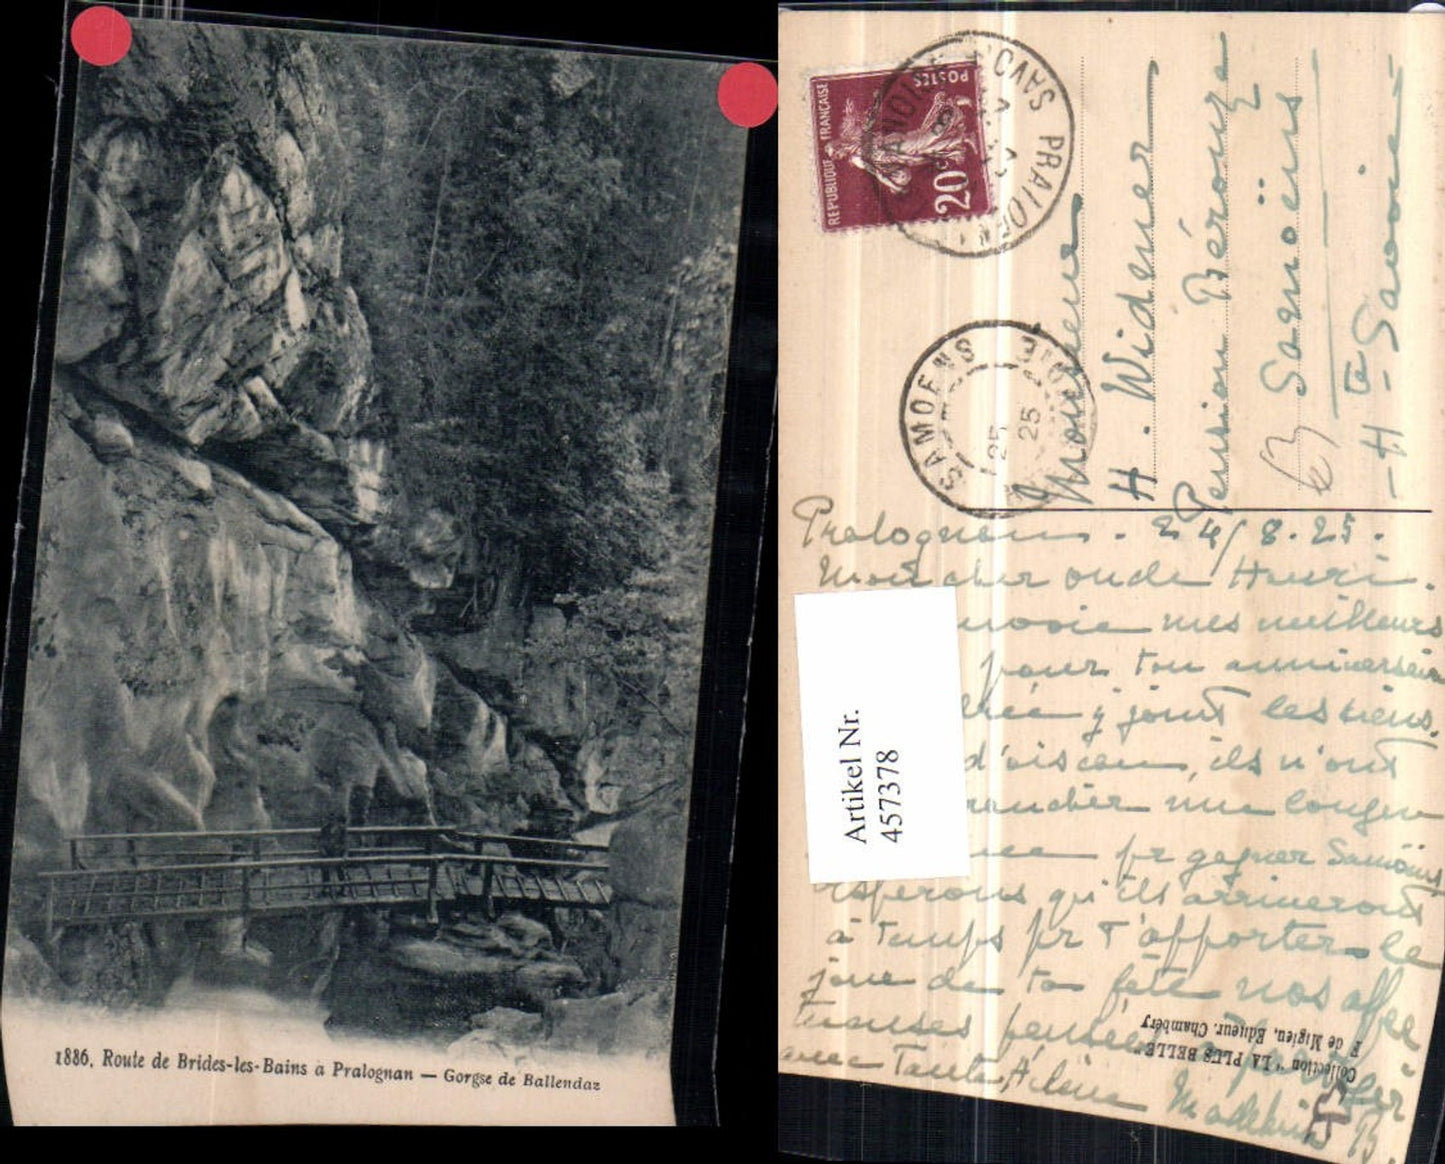 1886. Route de Brides-les-Bains à Pralognan — Gorgse de Ballendaz
REPUBLIQUE FRANÇAISE
POSTES
20c
PRALOGN
SAVO
SAMOENS
25
25
Monsieur
H. Widemer
Pension Bérouze
Samoëns
H-Savoie
Pralognan. 24/8.25.
Mon cher oncle Henri.
mes meilleurs
pour ton anniversaire
y joint les siens.
d'oiseau, ils n'ont
une longue
pr gagner Samoëns
espérons qu'ils arriveront
à temps pr t'apporter le
jour de ta fête nos affec
tueuses pensées
avec Tante Madeleine B.
Artikel Nr.
457378
Collection "LA PLUS BELLE"
F. de Migieu, Editeur. Chambéry